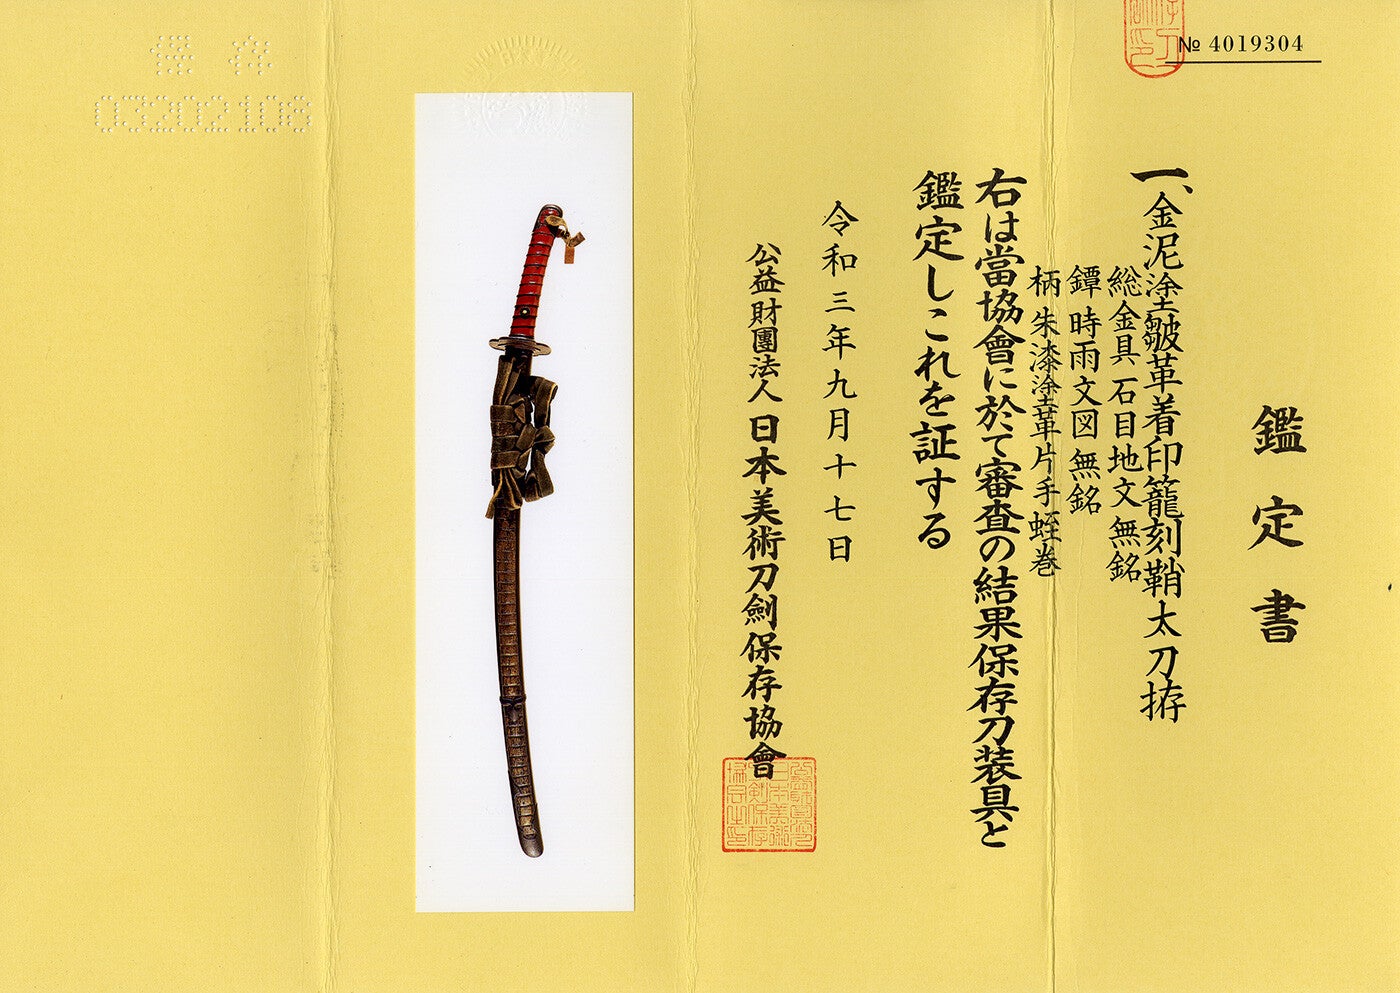 № 4019304
鑑定書
一、金泥塗皺革着印籠刻鞘太刀拵
総金具石目地文無銘
鐔時雨文図無銘
柄朱漆塗革片手蛭巻
右は當協會に於て審査の結果保存刀装具と
鑑定しこれを証する
令和三年九月十七日
公益財團法人日本美術刀劍保存協會
保存
03202106